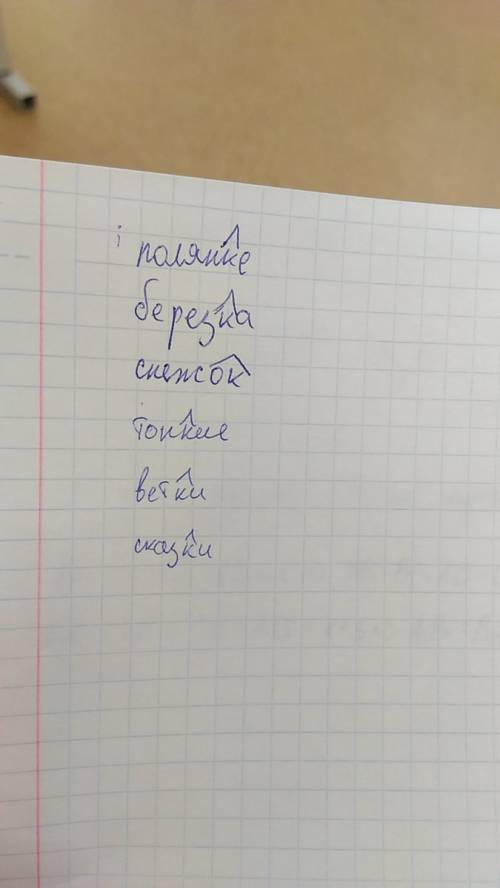 полянке
березка
снежок
тонкие
ветки
сказки